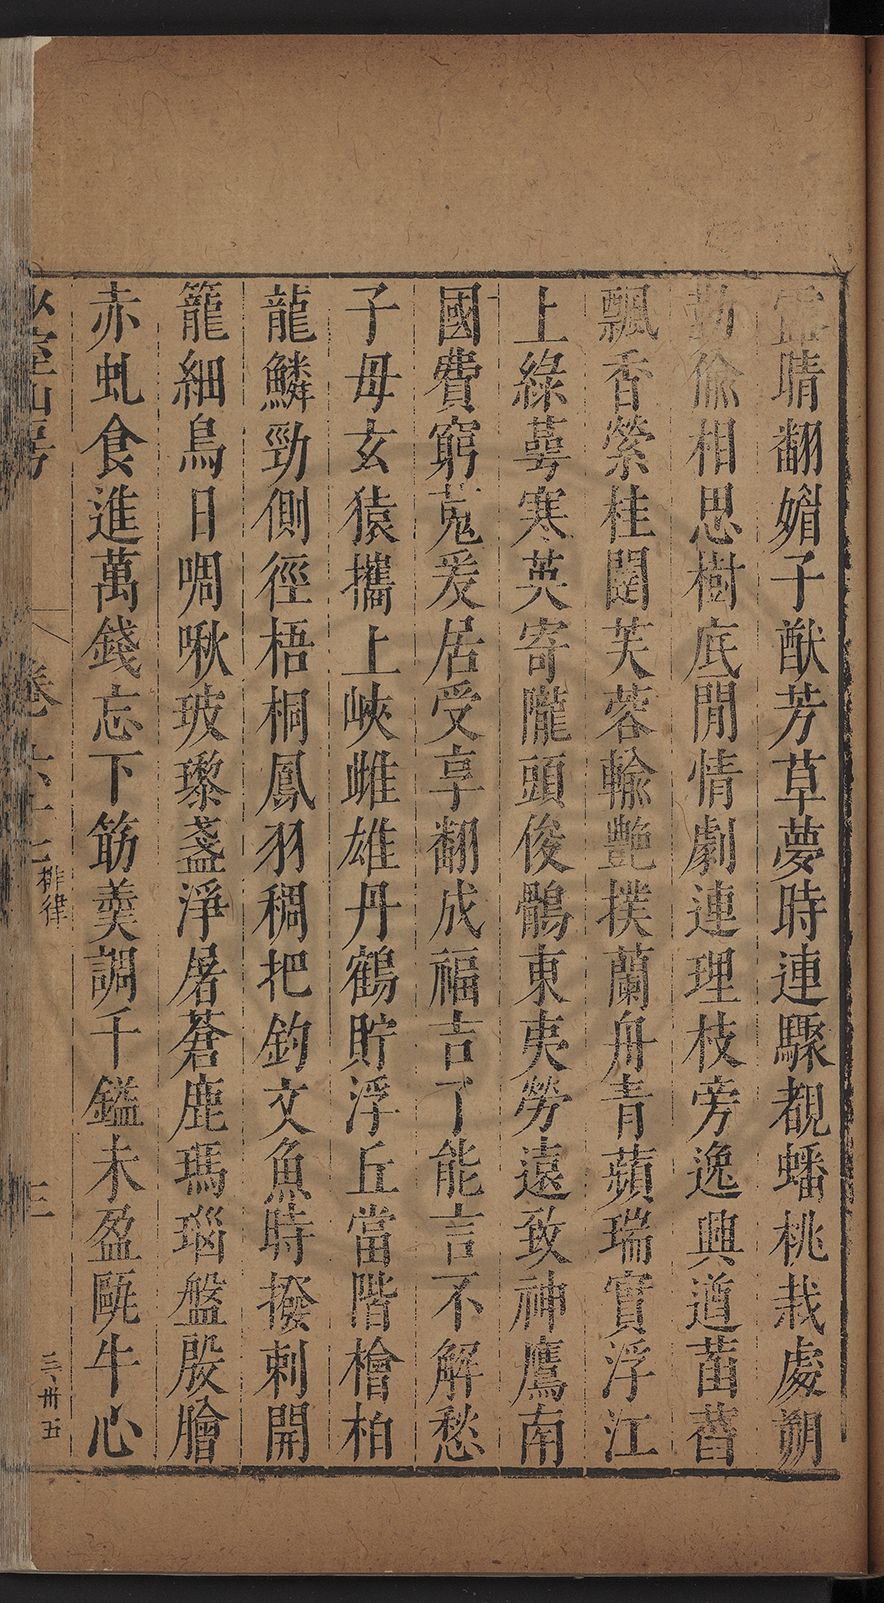 霊晴翻媚子猷芳草夢時連騄覩蟠桃栽處朔
勤偸相思樹底閒情劇連理枝旁逸興遒菡萏
飄香縈桂闥芙蓉輸艷撲蘭舟青蘋瑞實浮江
上綠萼寒英寄隴頭俊鶻東夷勞遠致神鷹南
國費窮蒐爰居受享翻成福吉了能言不解愁
子母玄猿攜上峽雌雄丹鶴貯浮丘當階檜柏
龍鱗勁側徑梧桐鳳羽稠把鈞文魚時撥剌開
籠細鳥日啁啾玻瓈盞淨屠蒼鹿瑪瑙盤殷膾
赤虬食進萬錢忘下筯羹調千鎰未盈甌牛心
室山房
卷六十七
排律
三
三、卅五